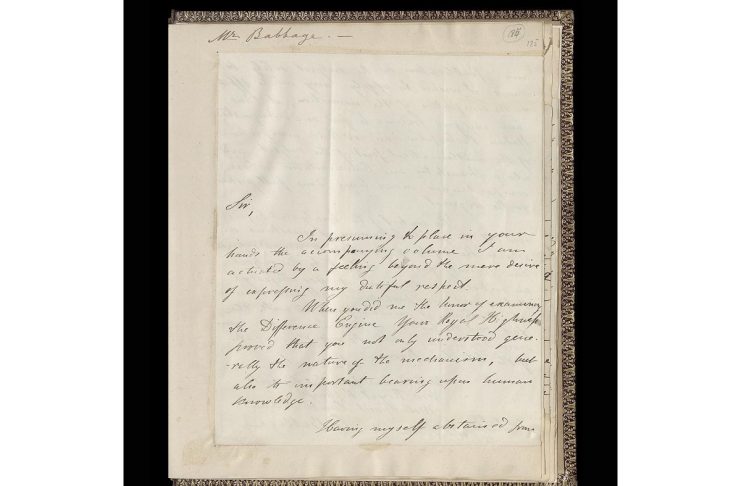 Mr. Babbage. —
185
Sir,
In presuming to place in your
hands the accompanying volume I am
actuated by a feeling beyond the mere desire
of expressing my dutiful respect.
When you did me the honor of examining
the Difference Engine Your Royal Highness
proved that you not only understood gene-
-rally the nature of the mechanism, but
also its important bearing upon human
knowledge.
Having myself abstained from